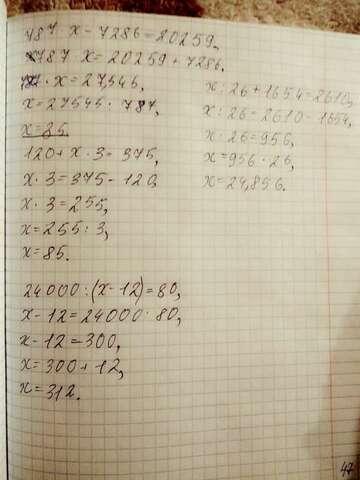 787 · x - 7286 = 20259,
787 x = 20259 + 7286.
x = 27545,
x = 27545 · 787,
x = 35.
120 + x · 3 = 375,
x · 3 = 375 - 120,
x · 3 = 255,
x = 255 : 3,
x = 85.
24000 : (x - 12) = 80,
x - 12 = 24000 · 80,
x - 12 = 300,
x = 300 + 12,
x = 312.
x : 26 + 1654 = 2610,
x : 26 = 2610 - 1654,
x · 26 = 956,
x = 956 · 26,
x = 24,856.
47